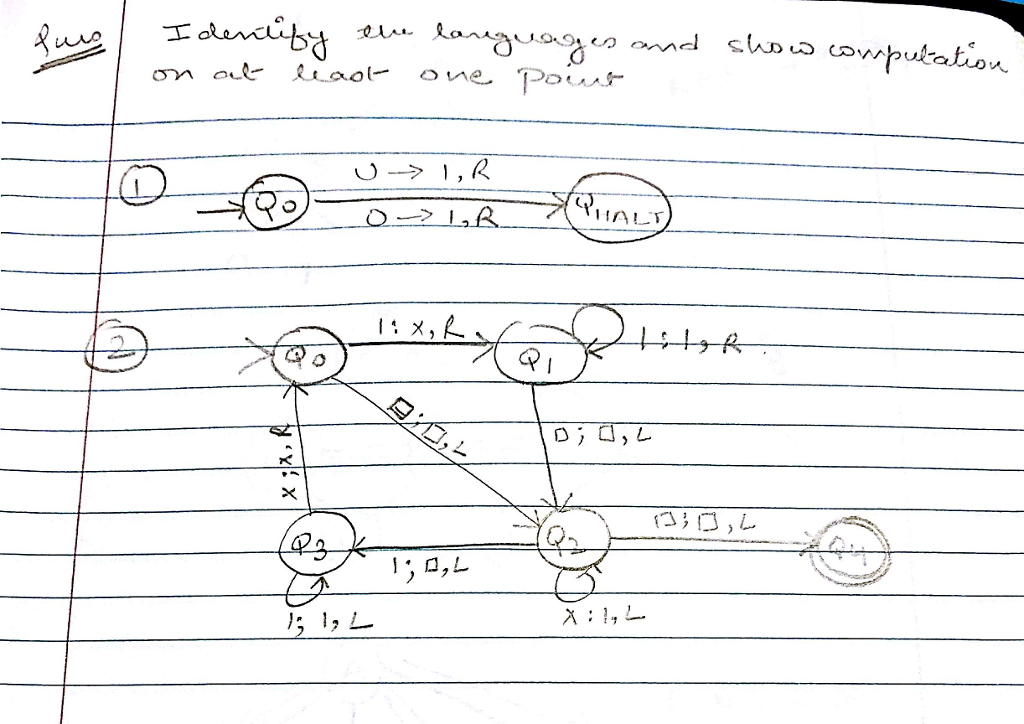 Ques Identify the languages and show computation
on at least one point
①
U → 1, R
Q0 QHALT
0 → 1, R
②
1: x, R
Q0 Q1 1; 1, R
□; □, L
□; □, L
x; x, R
□; □, L
Q3 Q2 Q4
1; □, L
1; 1, L x: 1, L